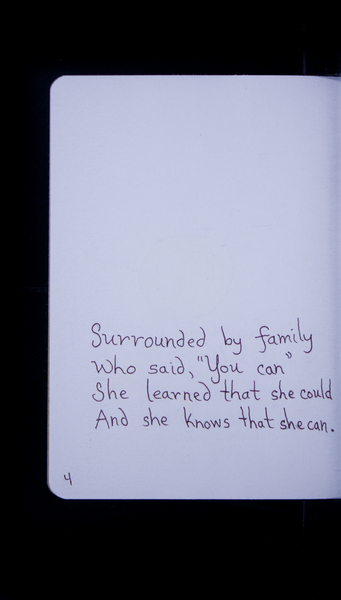 Surrounded by family
Who said, "You can"
She learned that she could
And she knows that she can.
4